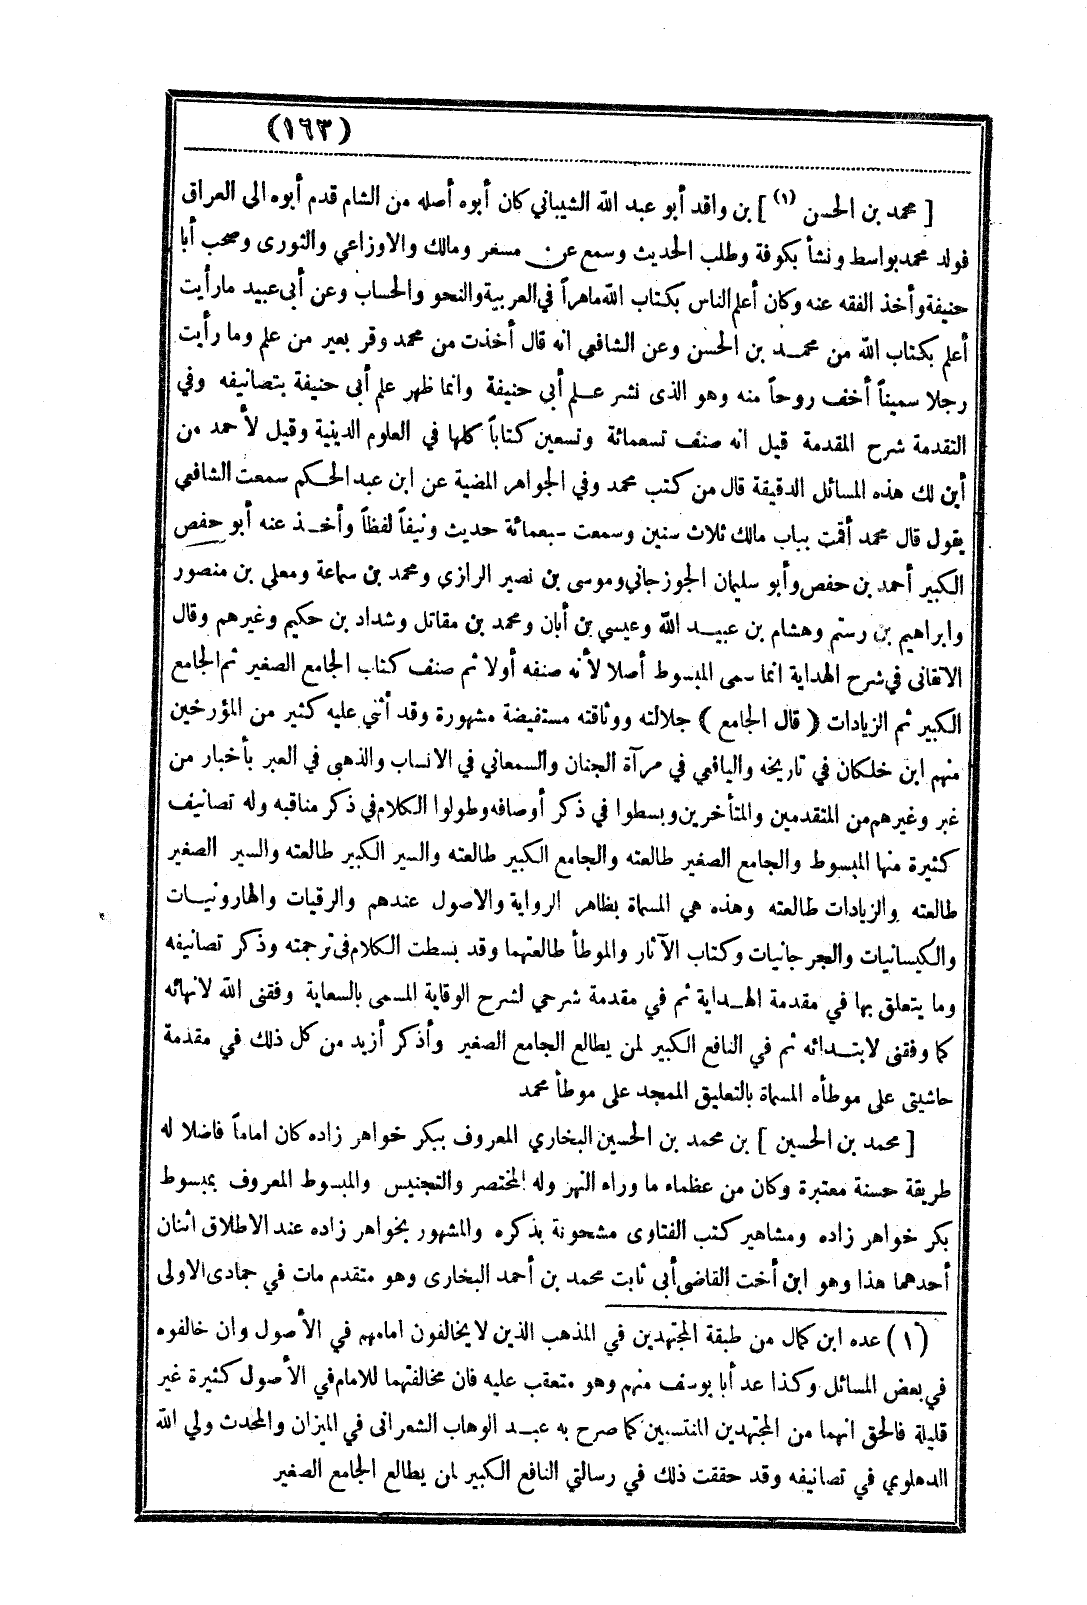 (١٦٣)
[ محمد بن الحسن (١) ] بن واقد أبو عبد الله الشيباني كان أبوه أصله من الشام قدم أبوه الى العراق
فولد محمد بواسط ونشأ بكوفة وطلب الحديث وسمع عن مسعر ومالك والاوزاعي والثورى وصحب أبا
حنيفة وأخذ الفقه عنه وكان أعلم الناس بكتاب الله ماهراً في العربية والنحو والحساب وعن أبى عبيد مارأيت
أعلم بكتاب الله من محمد بن الحسن وعن الشافعى انه قال أخذت من محمد وقر بعير من علم وما رأيت
رجلا سميناً أخف روحاً منه وهو الذى نشر علم أبي حنيفة وانما ظهر علم أبى حنيفة بتصانيفه وفي
التقدمة شرح المقدمة قيل انه صنف تسعمائة وتسعين كتاباً كلها في العلوم الدينية وقيل لأحمد من
أين لك هذه المسائل الدقيقة قال من كتب محمد وفي الجواهر المضية عن ابن عبد الحكم سمعت الشافعي
يقول قال محمد أقمت بباب مالك ثلاث سنين وسمعت سبعمائة حديث ونيفاً لفظاً وأخذ عنه أبو حفص
الكبير أحمد بن حفص وأبو سليمان الجوزجاني وموسى بن نصير الرازي ومحمد بن سماعة ومعلى بن منصور
وابراهيم بن رستم وهشام بن عبيد الله وعيسي بن أبان ومحمد بن مقاتل وشداد بن حكيم وغيرهم وقال
الاتقانى في شرح الهداية انما سمى المبسوط أصلا لأنه صنفه أولا ثم صنف كتاب الجامع الصغير ثم الجامع
الكبير ثم الزيادات ( قال الجامع ) جلالته ووثاقته مستفيضة مشهورة وقد أثني عليه كثير من المؤرخين
منهم ابن خلكان في تاريخه واليافعي في مرآة الجنان والسمعاني في الانساب والذهبى في العبر بأخبار من
غبر وغيرهم من المتقدمين والمتأخرين وبسطوا في ذكر أوصافه وطولوا الكلام في ذكر مناقبه وله تصانيف
كثيرة منها المبسوط والجامع الصغير طالعته والجامع الكبير طالعته والسير الكبير طالعته والسير الصغير
طالعته والزيادات طالعته وهذه هي المسماة بظاهر الرواية والاصول عندهم والرقيات والهارونيات
والكيسانيات والجرجانيات وكتاب الآثار والموطأ طالعتهما وقد بسطت الكلام فى ترجمته وذكر تصانيفه
وما يتعلق بها في مقدمة الهداية ثم في مقدمة شرحي لشرح الوقاية المسمى بالسعاية وفقنى الله لانهائه
كما وفقنى لابتدائه ثم في النافع الكبير لمن يطالع الجامع الصغير وأذكر أزيد من كل ذلك في مقدمة
حاشيتى على موطأه المسماة بالتعليق الممجد على موطأ محمد
[ محمد بن الحسين ] بن محمد بن الحسين البخاري المعروف ببكر خواهر زاده كان اماماً فاضلا له
طريقة حسنة معتبرة وكان من عظماء ما وراء النهر وله المختصر والتجنيس والمبسوط المعروف بمبسوط
بكر خواهر زاده ومشاهير كتب الفتاوى مشحونة بذكره والمشهور بخواهر زاده عند الاطلاق اثنان
أحدهما هذا وهو ابن أخت القاضى أبى ثابت محمد بن أحمد البخارى وهو متقدم مات في جمادى الاولى
(١) عده ابن كمال من طبقة المجتهدين في المذهب الذين لا يخالفون امامهم في الأصول وان خالفوه
في بعض المسائل وكذا عد أبا يوسف منهم وهو متعقب عليه فان مخالفتهما للامام في الأصول كثيرة غير
قليلة فالحق انهما من المجتهدين المنتسبين كما صرح به عبد الوهاب الشعرانى في الميزان والمحدث ولي الله
الدهلوي في تصانيفه وقد حققت ذلك في رسالتي النافع الكبير لمن يطالع الجامع الصغير